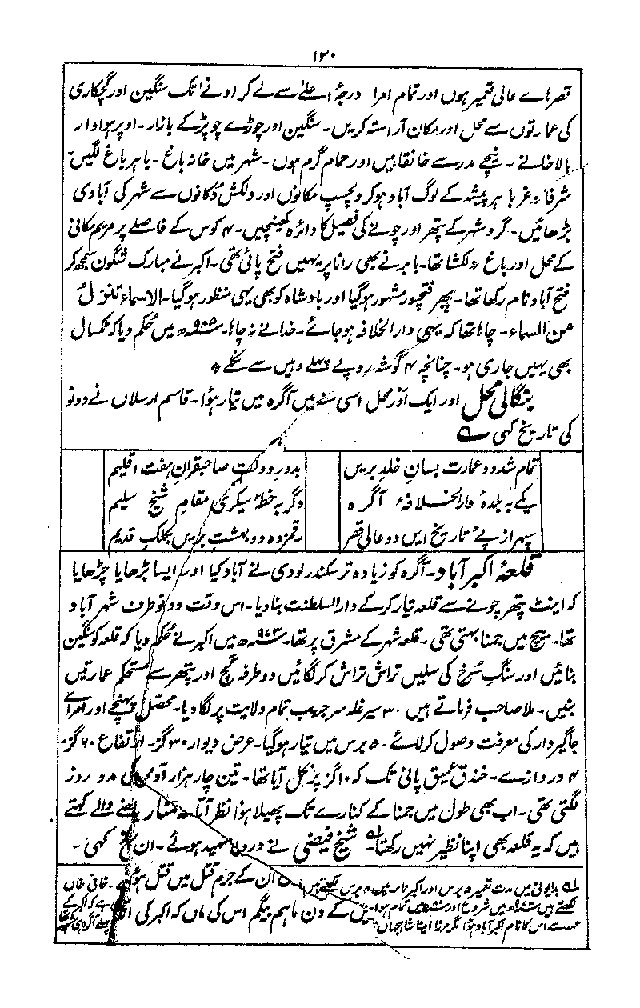 ۱۲۰
قصر ہاے عالی تعمیر ہوں اور تمام امرا درجۂ اعلےٰ سے لے کر ادنےٰ تک سنگین اور گچکاری
کی عمارتوں سے محل اور مکان آراستہ کریں۔ سنگین اور چوڑے چوپڑ کے بازار۔ اوپر ہوادار
بالاخانے۔ نیچے مدرسے خانقاہیں اور حمام گرم ہوں۔ شہر میں خانہ باغ۔ باہر باغ لگیں
شرفا و غربا ہر پیشہ کے لوگ آباد ہو کر دلچسپ مکانوں اور دلکش دکانوں سے شہر کی آبادی
بڑھائیں۔ گرد شہر کے پتھر اور چونے کی فصیل کا دائرہ کھینچیں۔ ۴ کوس کے فاصلے پر مریم مکانی
کے محل اور باغ دلکشا تھا۔ بابر نے بھی رانا پر یہیں فتح پائی تھی۔ اکبر نے مبارک شگون سمجھ کر
فتح آباد نام رکھا تھا۔ پھر فتحپور مشہور ہو گیا اور بادشاہ کو بھی یہی منظور ہو گیا۔ الاسماء تنزل
من السماء۔ چاہا تھا کہ یہی دارالخلافہ ہو جائے۔ خدا نے نہ چاہا۔ میں حکم دیا کہ ٹکسال
بھی یہیں جاری ہو۔ چنانچہ ۴ گوشہ روپے پہلے وہیں سے نکلے ٭
بنگالی محل اور ایک اور محل اسی سنہ میں آگرہ میں تیار ہوا۔ قاسم ارسلاں نے دونو
کی تاریخ کہی ہے
تمام شد دو عمارت بسان خلد بریں بدور دولت صاحبقران ہفت اقلیم
یکے بہ بلدۂ دارالخلافۂ آگرہ دگر بہ خطۂ سیکری مقام شیخ سلیم
سپہر از پے تاریخ ایں دو عالی قصر رقم زدہ دو بہشت بریں بکلک قدیم
قلعۂ اکبر آباد۔ آگرہ کو زیادہ تر سکندر لودی نے آباد کیا اور ایسا بڑھایا چڑھایا
کہ اینٹ پتھر چونے سے قلعہ تیار کر کے دارالسلطنت بنا دیا۔ اس وقت دو نو طرف شہر آباد
تھا۔ بیچ میں جمنا بہتی تھی۔ قلعہ شہر کے مشرق پر تھا۔ میں اکبر نے حکم دیا کہ قلعہ کو سنگین
بنائیں اور سنگ سرخ کی سلیں تراش تراش کر لگائیں دو طرفہ گچ اور پتھر سے مستحکم عمارتیں
بنیں۔ ملا صاحب فرماتے ہیں ۳ سیر غلہ سر جریب تمام ولایت پر لگا دیا۔ محصل پہنچے اور امرائے
جاگیردار کی معرفت وصول کر لائے۔ ۵ برس میں تیار ہو گیا۔ عرض دیوار ۳۰ گز۔ ارتفاع ۶۰ گز۔
۴ دروازے۔ خندق عمیق پانی تک کہ ۱۰ گز پر نکل آیا تھا۔ تین چار ہزار آدمی کی مدد روز
لگتی تھی۔ اب بھی طول میں جمنا کے کنارے تک پھیلا ہوا نظر آتا ہے والے کہتے
ہیں کہ یہ قلعہ بھی اپنا نظیر نہیں رکھتا شیخ فیضی نے دروازہ کہی۔
میں مدت تعمیر ۵ برس اور اکبر نامہ لکھتے ہیں ان کے جرم قتل میں قتل خافی خاں
لکھتے ہیں میں شروع اور میں تمام کے دن ماہم بیگم اس کی ماں کہ اکبر کی
اس کا نام اکبر آباد ہوا مگر مرزا امینا شاہجہاں